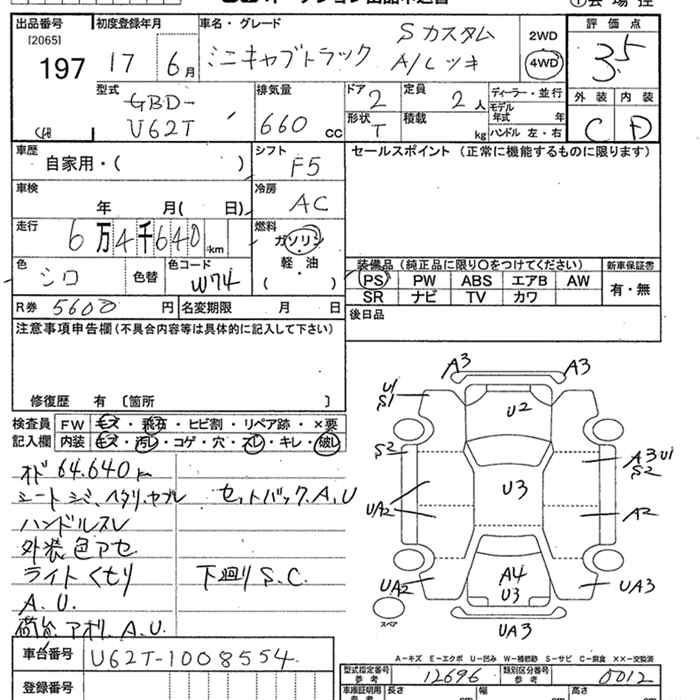 出品番号
[2065]
197
初度登録年月
17 6月
車名・グレード
ミニキャブトラック
Sカスタム
A/Lツキ
2WD
4WD
評価点
3.5
型式
GBD-
U62T
排気量
660 cc
ドア 2
形状 T
定員 2人
積載 kg
ディーラー・並行
モデル年式 年
ハンドル 左・右
外装 内装
C D
車歴
自家用・( )
シフト
F5
セールスポイント (正常に機能するものに限ります)
車検
年 月( 日)
冷房
AC
走行
6万4千640km
燃料
ガソリン
・
軽・油
( )
色
シロ
色替
色コード
W74
装備品 (純正品に限り○をつけてください)
新車保証書
PS PW ABS エアB AW
SR ナビ TV カワ
有・無
R券 5600円
名変期限 月 日
後日品
注意事項申告欄(不具合内容等は具体的に記入して下さい)
修復歴 有 〔箇所 〕
検査員
記入欄
FW キズ・飛石・ヒビ割・リペア跡・×要
内装 キズ・汚レ・コゲ・穴・スレ・キレ・破レ
オド 64.640km
シート シミ、ヘタリ、ヤブレ
セットバック A.U
ハンドルスレ
外装 色アセ
ライトくもり
下廻り S.C.
A.U.
荷台、アオリ A.U.
車台番号 U62T-1008554
登録番号
A3 A3
U1
S1
U2
S2
A3 U1
S2
U3
UA2
A2
A4
U3
UA2
UA3
スペア
UA3
A-キズ E-エクボ U-凹み W-補修跡 S-サビ C-腐食 ××-交換済
型式指定番号
参考
12696
類別区分番号
参考
0012
車庫証明用
参考
長さ 幅 高さ